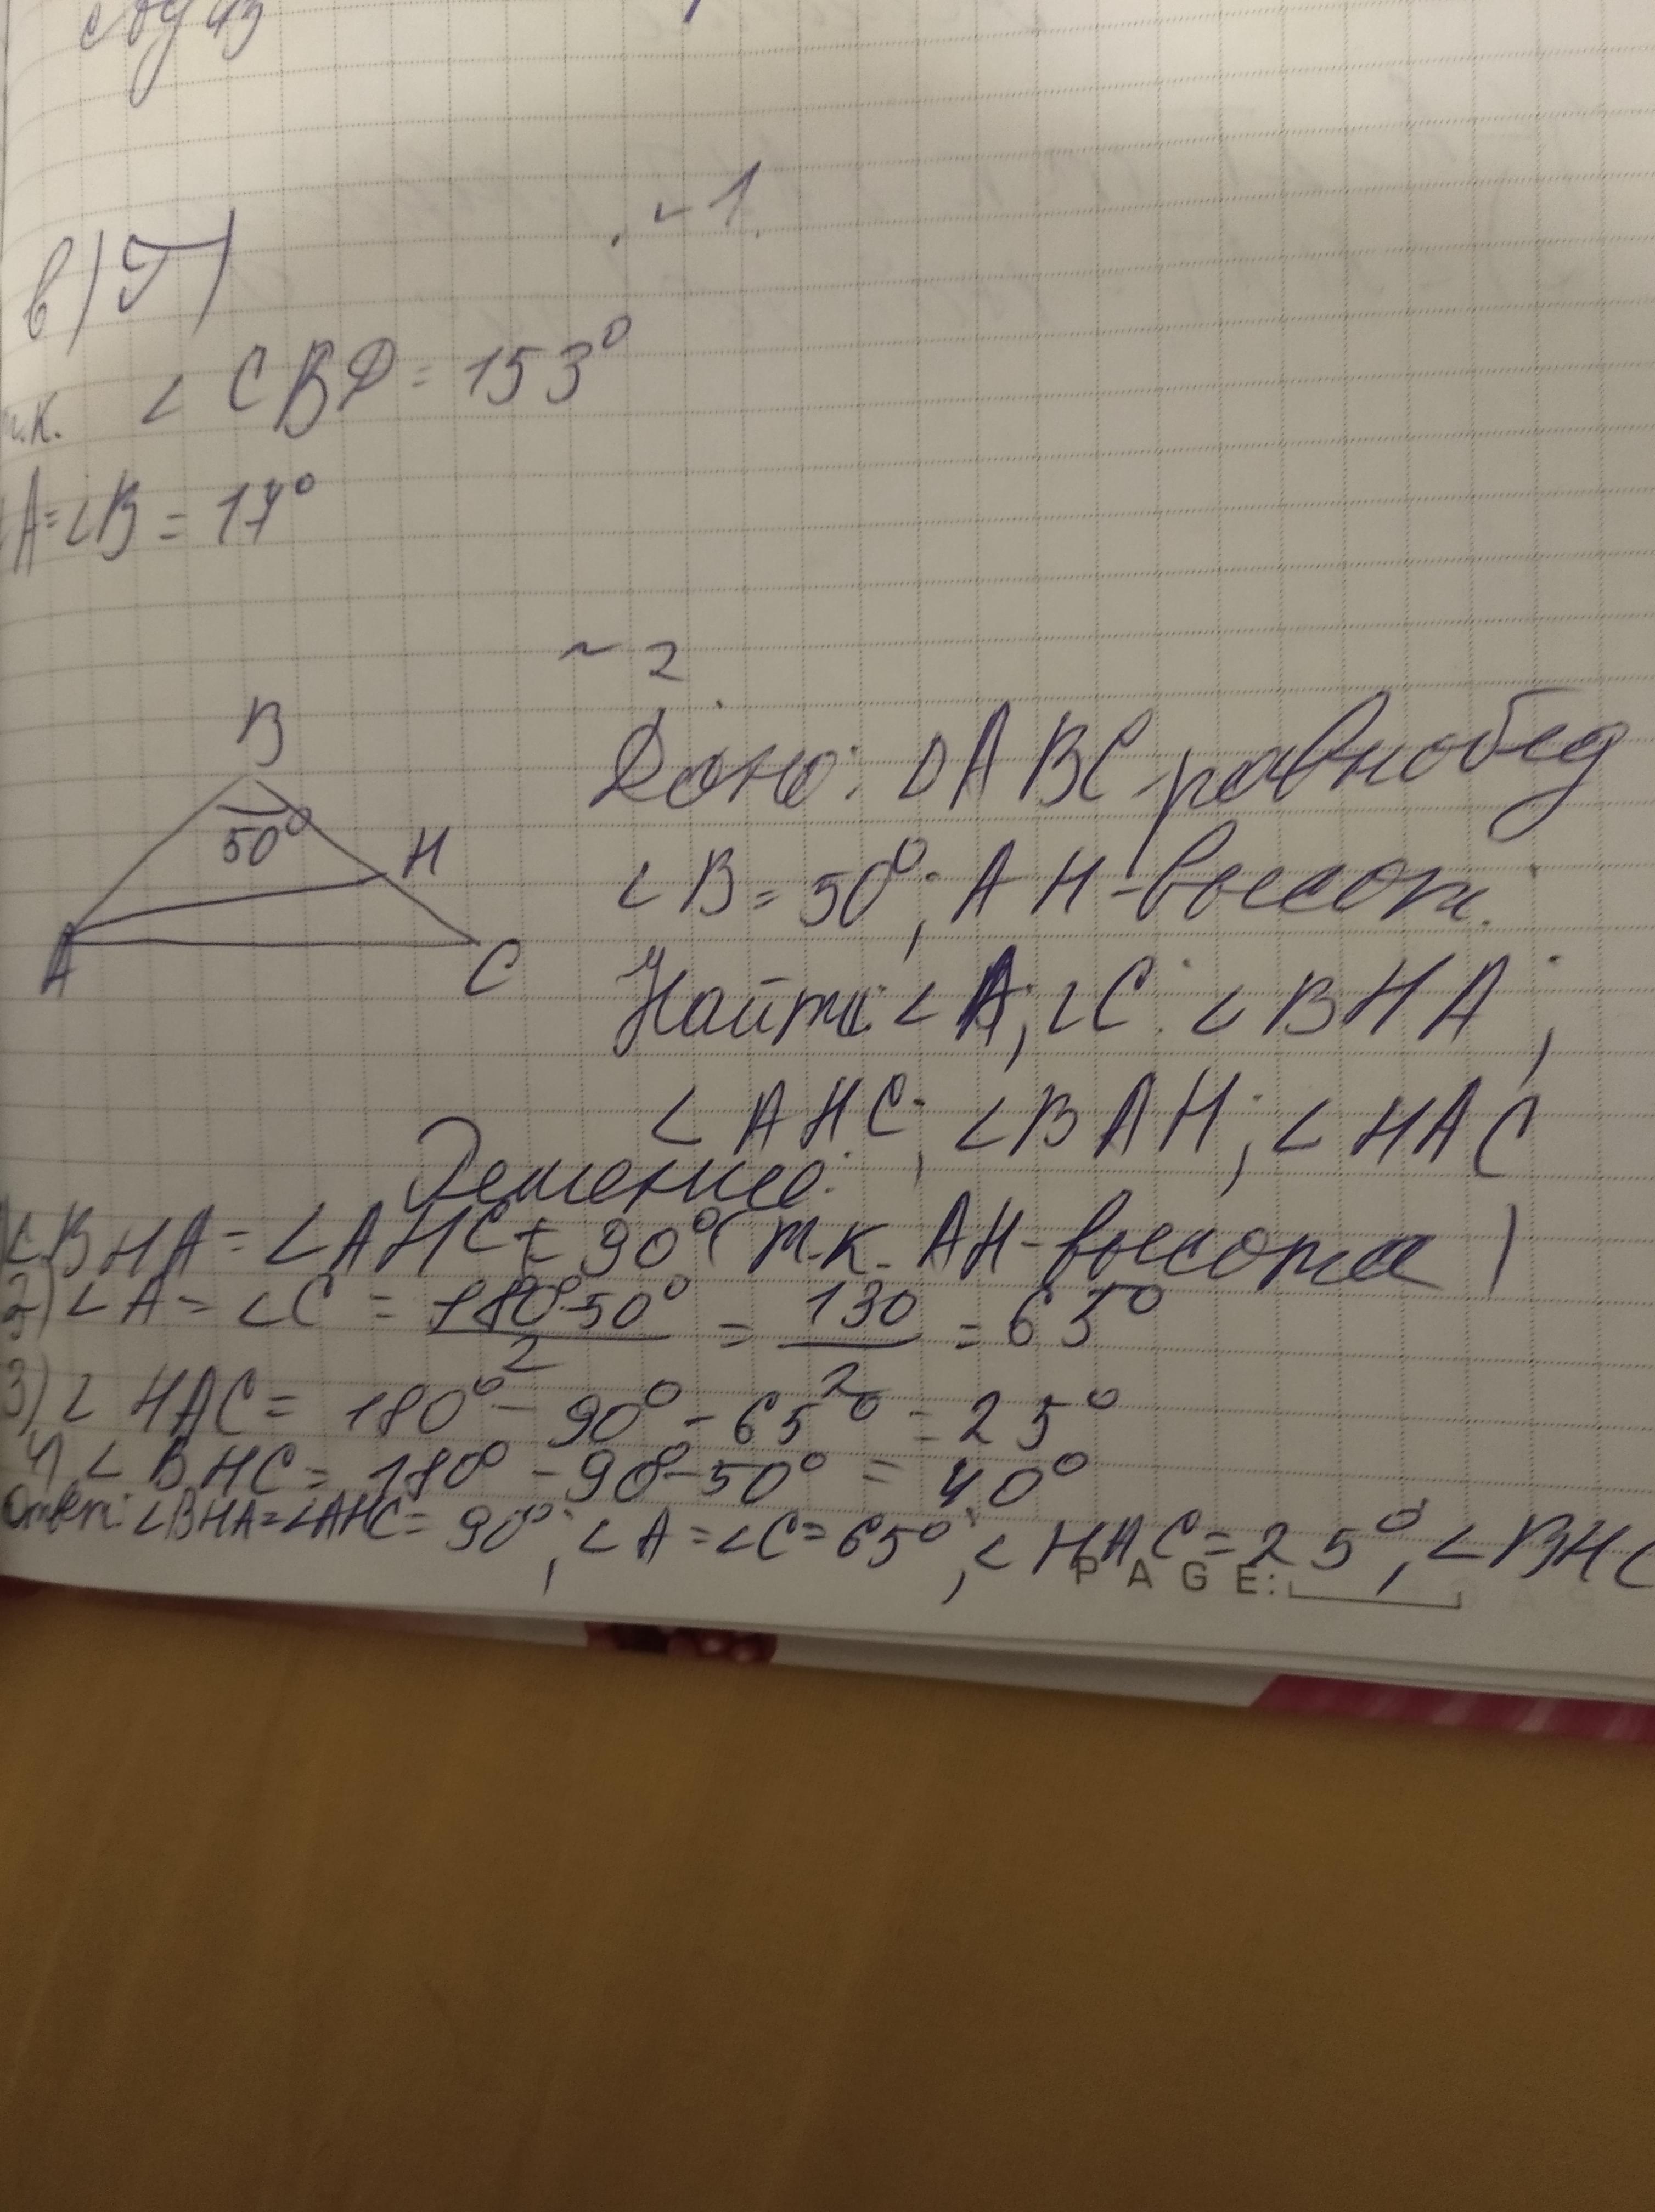 №1.
в) Г)
т.к. ∠ CBD = 153°
∠A = ∠B = 17°
№2
B
50°
H
A
C
Дано: △ABC-равнобед
∠B = 50°; AH-высот.
Найти: ∠A; ∠C; ∠BHA;
∠AHC; ∠BAH; ∠HAC
Решение:
∠BHA = ∠AHC = 90° (т.к. AH-высота)
2) ∠A = ∠C = 180°-50°/2 = 130/2 = 65°
3) ∠ HAC = 180° - 90° - 65° = 25°
4) ∠ BHC = 180° - 90° - 50° = 40°
Ответ: ∠BHA = ∠AHC = 90°; ∠A = ∠C = 65°; ∠HAC = 25°, ∠BHC
PAGE: